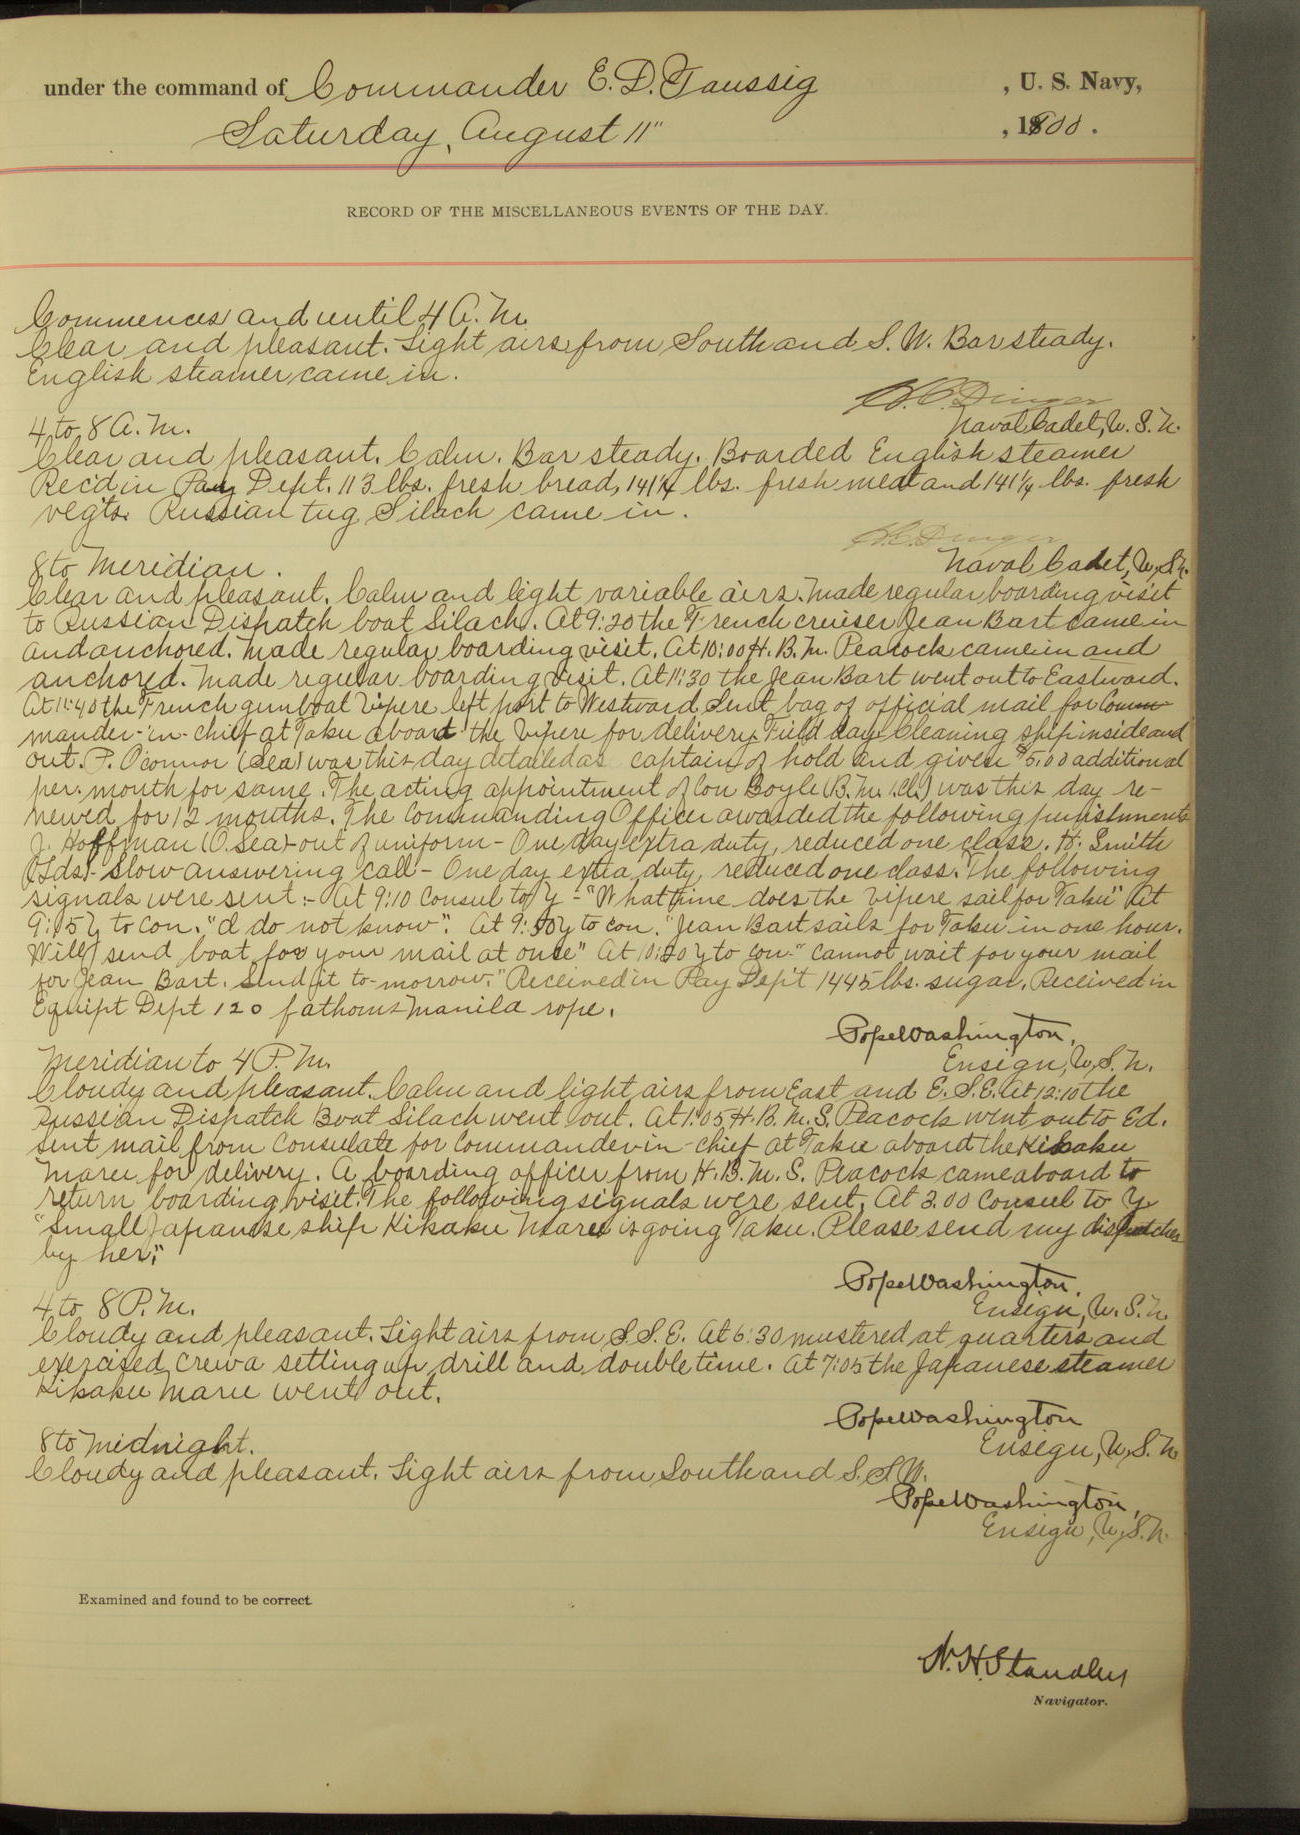 under the command of Commander E. D. Taussig , U. S. Navy,
Saturday, August 11" , 1900.
RECORD OF THE MISCELLANEOUS EVENTS OF THE DAY.
Commences and until 4 A. M.
Clear and pleasant. Light airs from South and S. W. Bar steady.
English steamer came in.
H. C. Dinger
Naval Cadet, U. S. N.
4 to 8 A. M.
Clear and pleasant. Calm. Bar steady. Boarded English steamer
Rec'd in Pay Dept. 113 lbs. fresh bread, 141¼ lbs. fresh meat and 141¼ lbs. fresh
vegts. Russian tug Silach came in.
H. C. Dinger
Naval Cadet, U. S. N.
8 to Meridian.
Clear and pleasant. Calm and light variable airs. Made regular boarding visit
to Russian Dispatch boat Silach. At 9:20 the French cruiser Jean Bart came in
and anchored. Made regular boarding visit. At 10:00 H. B. M. Peacock came in and
anchored. Made regular boarding visit. At 11:30 the Jean Bart went out to Eastward.
At 11:40 the French gunboat Vipere left port to Westward Sent bag of official mail for Comm-
mander-in-chief at Taku aboard the Vipere for delivery Field day. Cleaning ship inside and
out. P. O'connor (Sea) was this day detailed as captain of hold and given $5.00 additional
per. month for same. The acting appointment of Con Boyle (B. M. 1.Cl.) was this day re-
newed for 12 months. The Commanding Officer awarded the following punishments
J. Hoffman (O. Sea)-out of uniform - One day extra duty, reduced one class. H. Smith
(Lds)- Slow answering call - One day extra duty, reduced one class. The following
signals were sent:- At 9:10 Consul to Y - "What time does the Vipere sail for Taku" At
9:15 Y to Con. "I do not know". At 9:50 Y to con. "Jean Bart sails for Taku in one hour.
Will send boat for your mail at once" At 10:20 Y to Con. "cannot wait for your mail
for Jean Bart. Send it to-morrow." Received in Pay Dep't 1445 lbs. sugar. Received in
Equipt Dept 120 fathoms Manila rope.
Pope Washington,
Ensign, U. S. N.
Meridian to 4 P. M.
Cloudy and pleasant. Calm and light airs from East and E. S. E. At 12:10 the
Russian Dispatch Boat Silach went out. At 1:05 H. B. M. S. Peacock went out to Ed.
Sent mail from Consulate for Commander in-chief at Taku aboard the Kikaku
Maru for delivery. A boarding officer from H. B. M. S. Peacock came aboard to
return boarding visit. The following signals were sent. At 3.00 Consul to Y
"Small Japanese ship Kikaku Maru is going Taku. Please send my dispatches
by her."
Pope Washington,
Ensign, U. S. N.
4 to 8 P. M.
Cloudy and pleasant. Light airs from S. S. E. At 6:30 mustered at quarters and
exercised crew a setting up drill and double time. At 7:05 the Japanese steamer
Kikaku Maru went out.
Pope Washington
Ensign, U. S. N.
8 to Midnight.
Cloudy and pleasant. Light airs from South and S. S. W.
Pope Washington,
Ensign, U. S. N.
Examined and found to be correct.
W. H. Standley
Navigator.